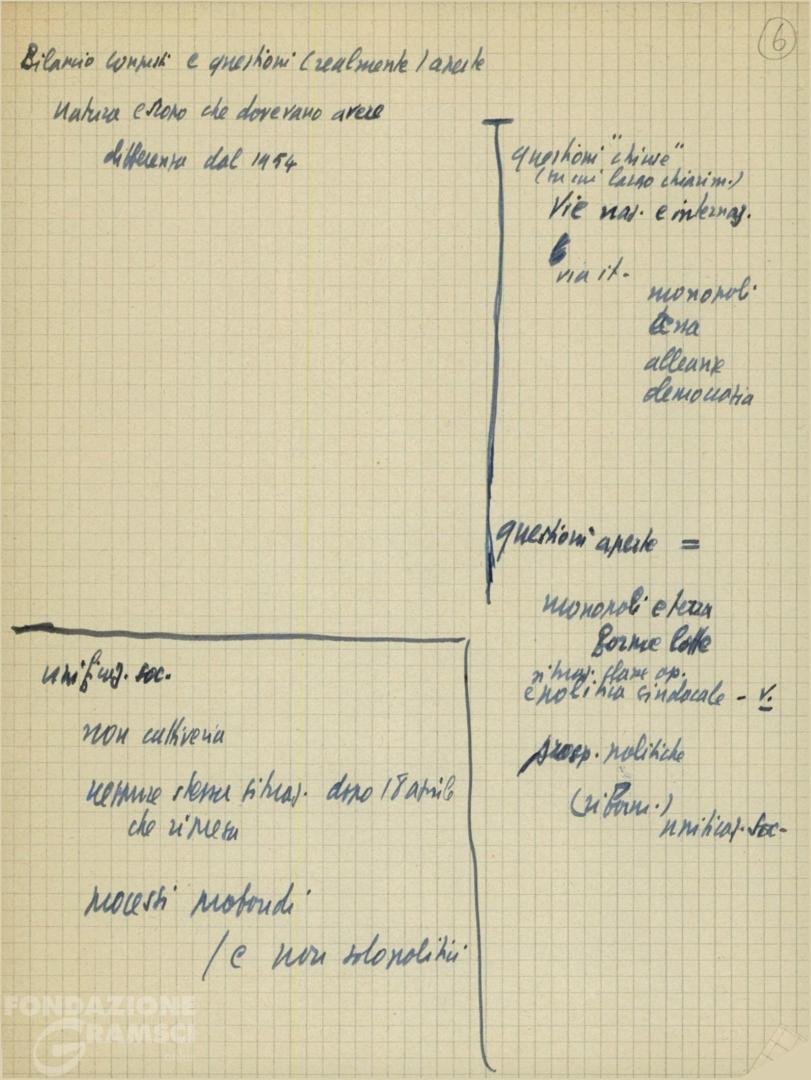 6
Bilancio congressi e questioni (realmente) aperte
natura e scopo che dovevano avere
differenza dal 1954
questioni "chiuse"
(su cui lascio chiarim.)
Vie naz. e internaz.
via it.
monopoli
terra
alleanze
democrazia
questioni aperte =
monopoli e terra
forme lotte
situaz. classe op.
e politica sindacale - v.
prosp. politiche
(riform.)
unificaz. soc.
unificaz. soc.
non cattiveria
neppure stessa situaz. dopo 18 aprile
che ripresa
processi profondi
/ e non solo politici
FONDAZIONE
GRAMSCI